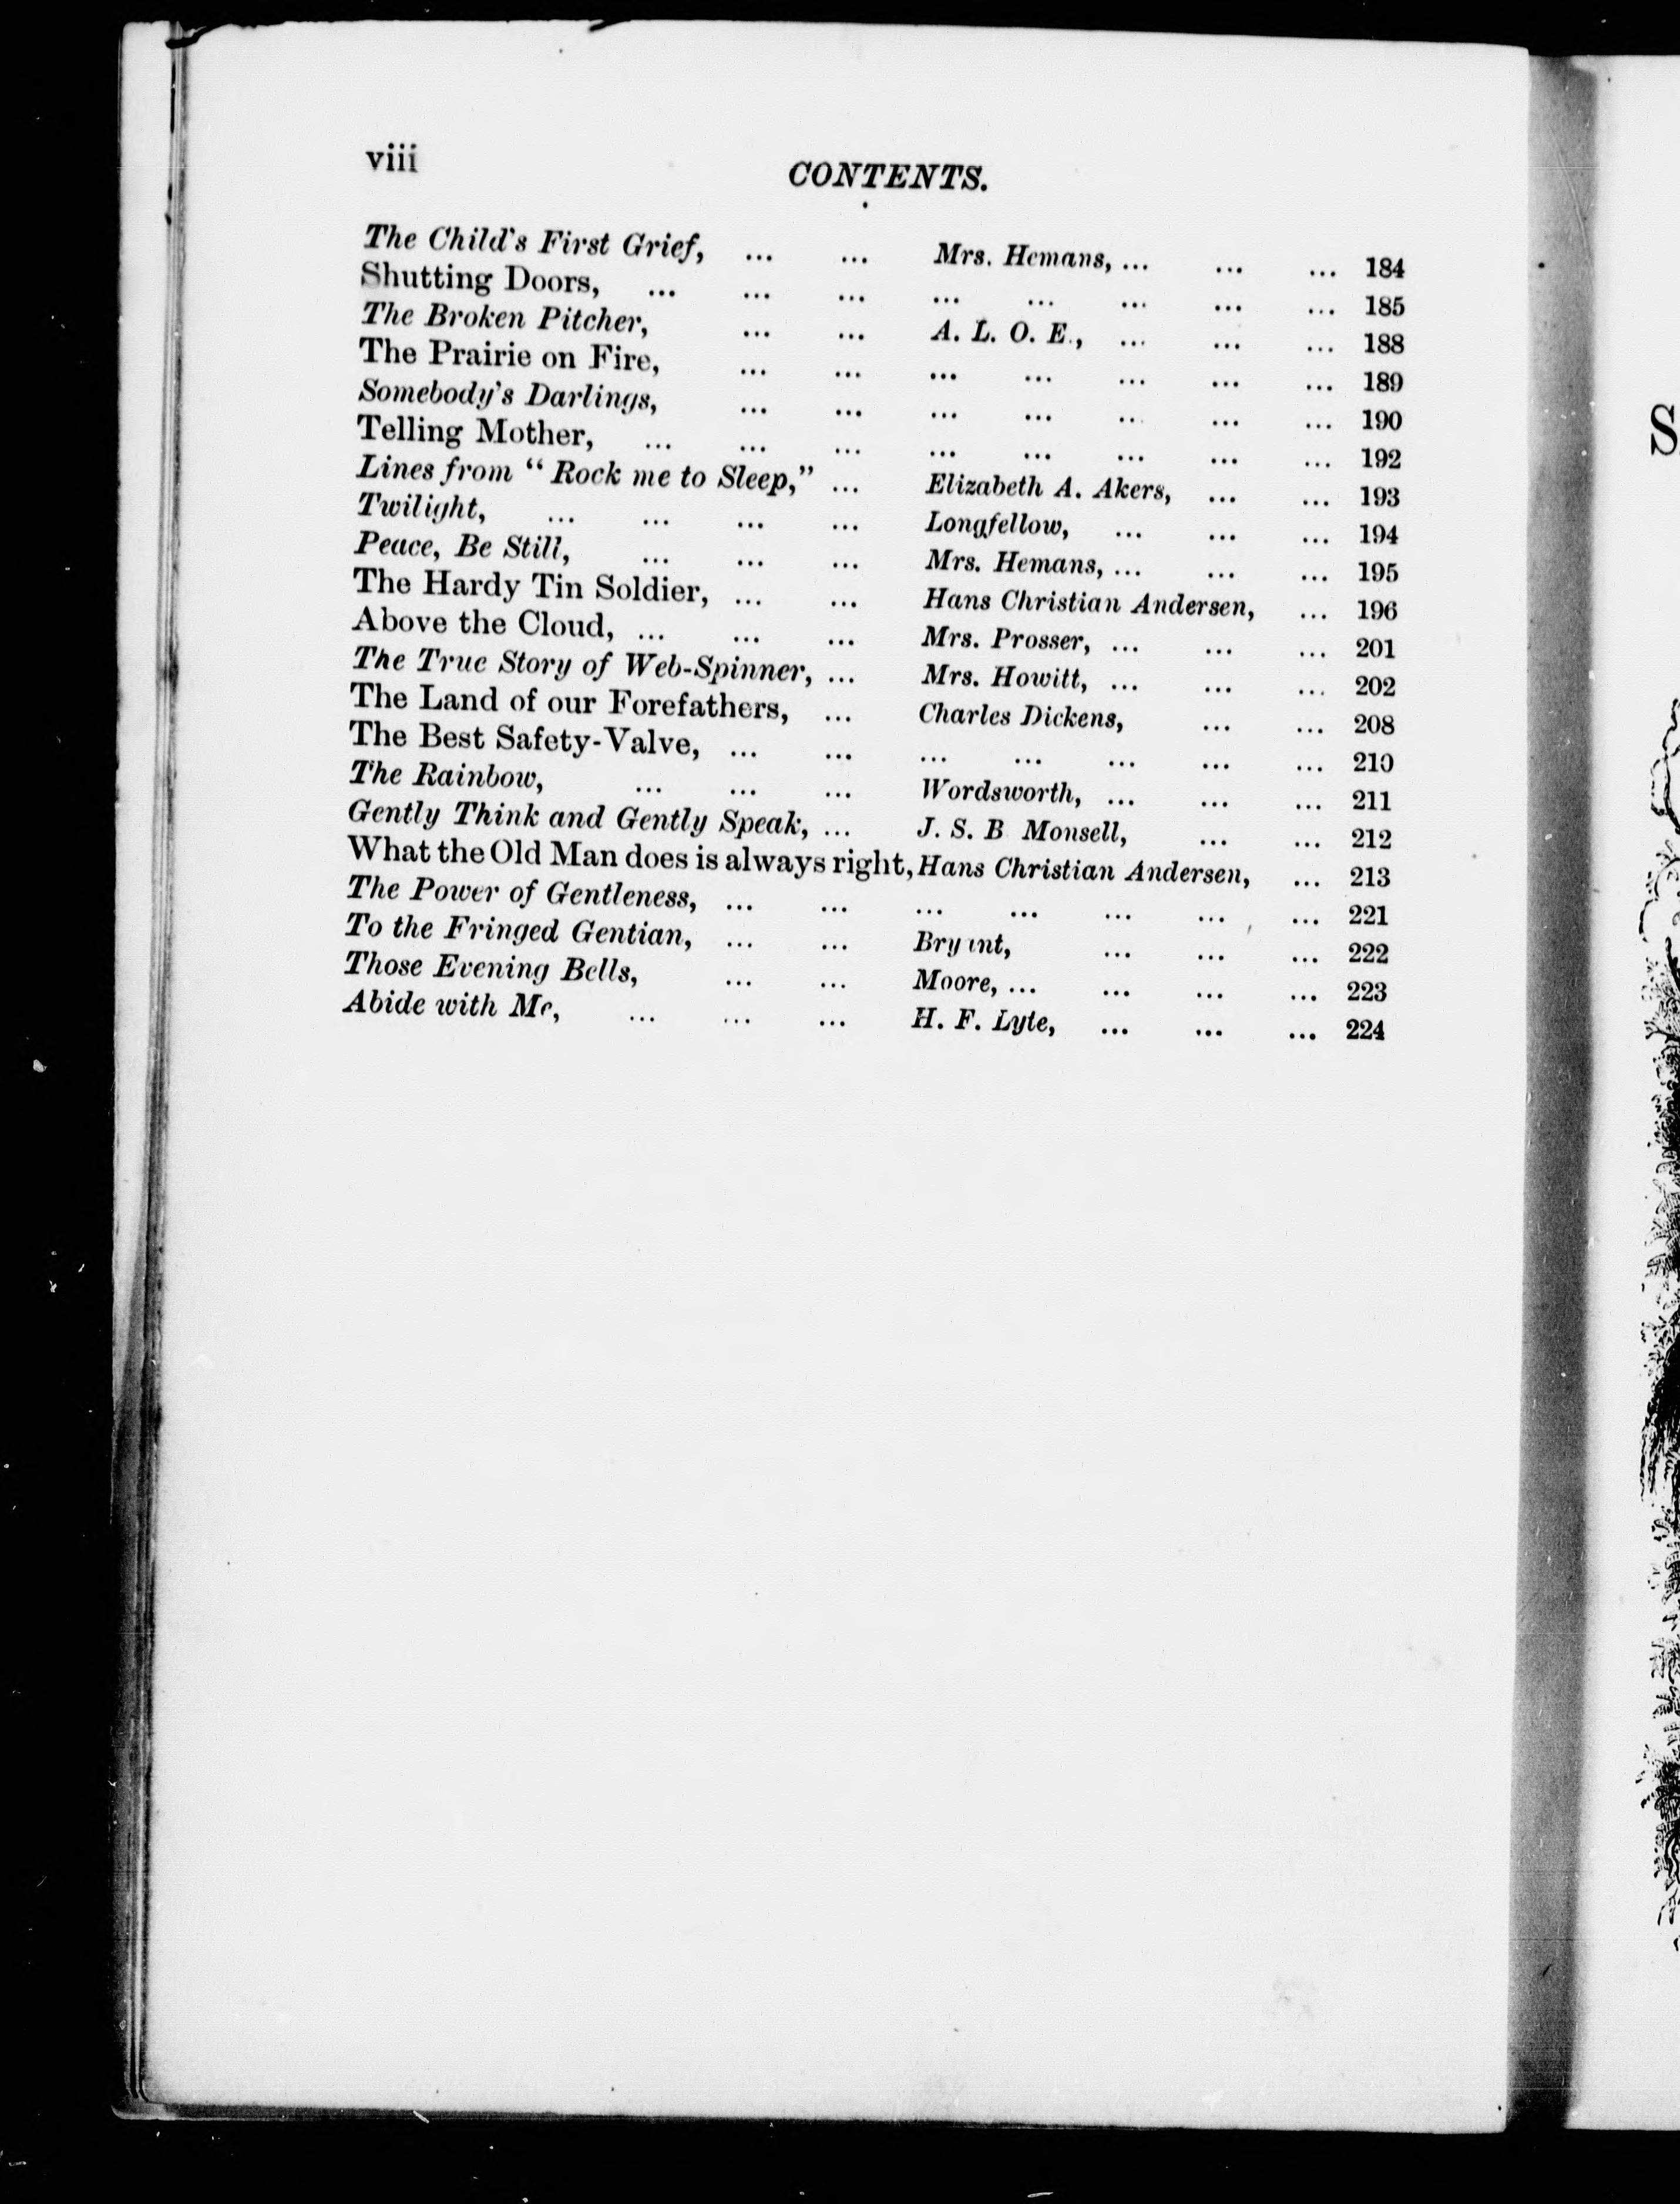 viii
CONTENTS.
The Child's First Grief, ... ... Mrs. Hemans, ... ... ... 184
Shutting Doors, ... ... ... ... ... ... ... ... 185
The Broken Pitcher, ... ... A. L. O. E., ... ... ... 188
The Prairie on Fire, ... ... ... ... ... ... ... 189
Somebody's Darlings, ... ... ... ... ... ... ... 190
Telling Mother, ... ... ... ... ... ... ... ... 192
Lines from “Rock me to Sleep,” ... Elizabeth A. Akers, ... ... 193
Twilight, ... ... ... ... Longfellow, ... ... ... 194
Peace, Be Still, ... ... ... Mrs. Hemans, ... ... ... 195
The Hardy Tin Soldier, ... ... Hans Christian Andersen, ... 196
Above the Cloud, ... ... ... Mrs. Prosser, ... ... ... 201
The True Story of Web-Spinner, ... Mrs. Howitt, ... ... ... 202
The Land of our Forefathers, ... Charles Dickens, ... ... 208
The Best Safety-Valve, ... ... ... ... ... ... ... 210
The Rainbow, ... ... ... Wordsworth, ... ... ... 211
Gently Think and Gently Speak, ... J. S. B Monsell, ... ... 212
What the Old Man does is always right, Hans Christian Andersen, ... 213
The Power of Gentleness, ... ... ... ... ... ... ... 221
To the Fringed Gentian, ... ... Bryant, ... ... ... 222
Those Evening Bells, ... ... Moore, ... ... ... ... 223
Abide with Me, ... ... ... H. F. Lyte, ... ... ... 224
S